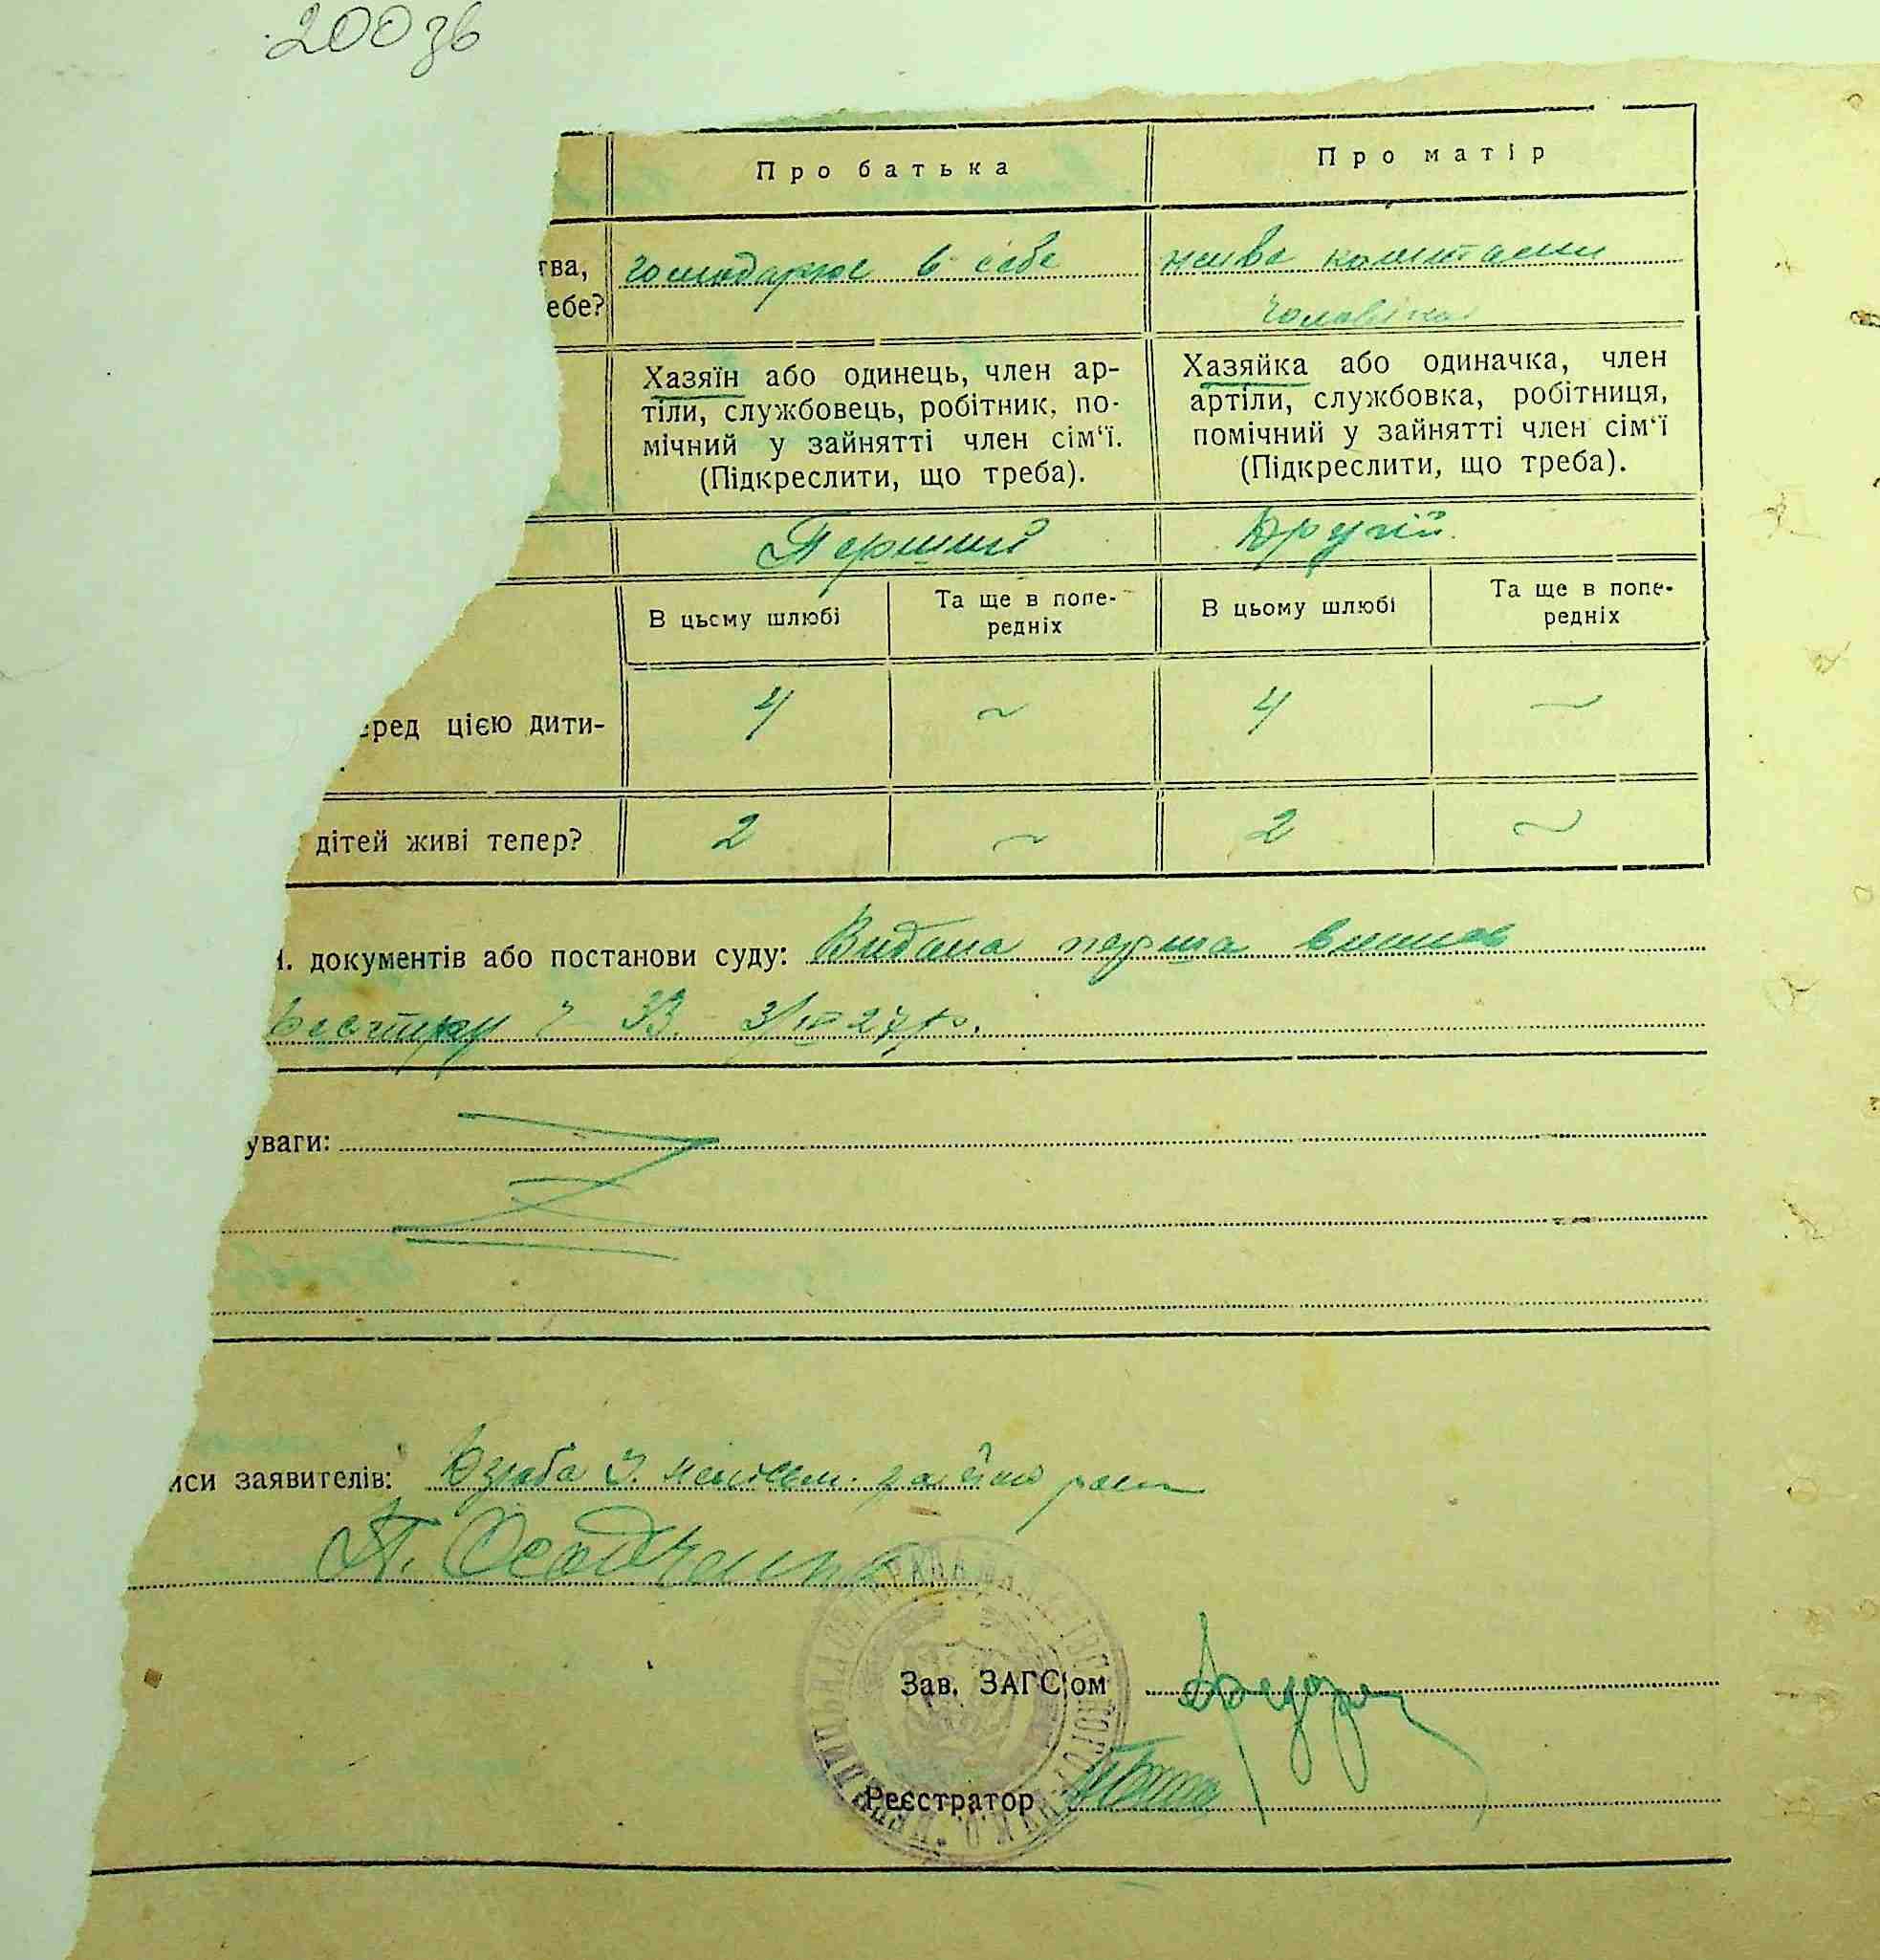 200зв
Про батька
Про матір
тва,
ебе?
господарює в себе
живе коштами
чоловіка
Хазяїн або одинець, член ар-
тіли, службовець, робітник, по-
мічний у зайнятті член сім‘ї.
(Підкреслити, що треба).
Хазяйка або одиначка, член
артіли, службовка, робітниця,
помічний у зайнятті член сім‘ї
(Підкреслити, що треба).
Перший
Другий
В цьсму шлюбі
Та ще в попе-
редніх
В цьому шлюбі
Та ще в попе-
редніх
еред цією дити-
4
~
4
~
дітей живі тепер?
2
~
2
~
документів або постанови суду: Видана перша
27 р.
уваги:
иси заявителів:
П. Осадченко
Зав. ЗАГС‘ом
Реєстратор